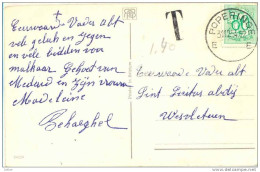 Eerwaarde Vader abt
vele geluk en zegen
en vele bidden voor
malkaar. Gehoet van
Medard en Zijn vrouw
Madeleine
Behaeghel
T
1.40
POPERINGE
E E
Eerwaarde Vader abt
Sint Sixtus abdij
Westvleteren